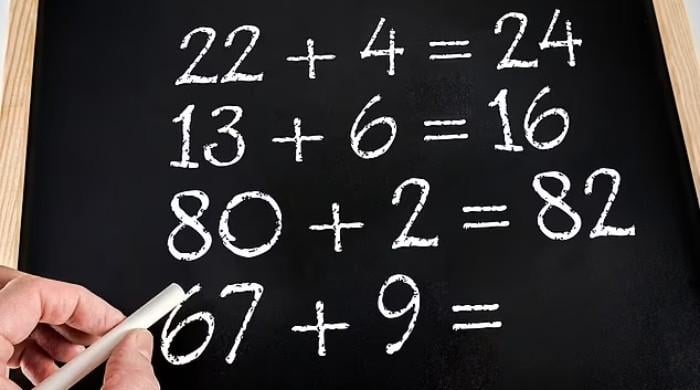 22 + 4 = 24
13 + 6 = 16
80 + 2 = 82
67 + 9 =